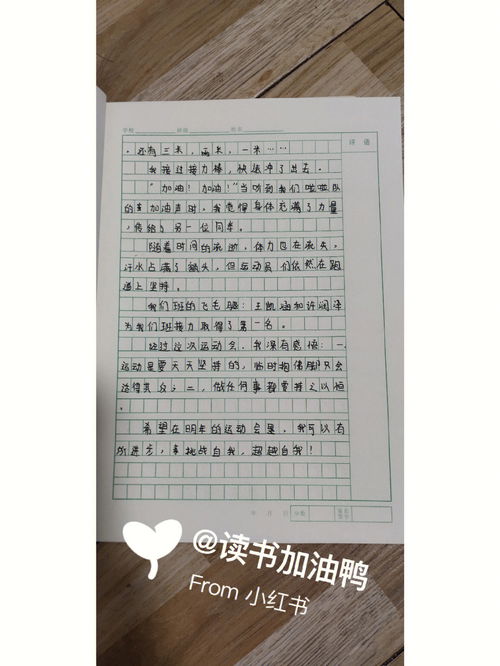 学校 班级 姓名
评语
。还有三米，两米，一米……
我接过接力棒，快速冲了出去。
“加油！加油！”当听到我们啦啦队
的加油声时，我觉得身体充满了力量
，传给了另一位同学。
随着时间的流逝，体力也在流失。
汗水占满了额头，但运动员们依然在跑
道上坚持。
我们班的飞毛腿：王凯涵和许润泽
为我们班接力取得了第一名。
经过这次运动会，我深有感悟：一、
运动是要天天坚持的，临时抱佛脚只会
适得其反；二、做任何事都要持之以恒
。
希望在明年的运动会里，我可以有
所进步，挑战自我，超越自我！
年 月 日 分数
@读书加油鸭
From 小红书